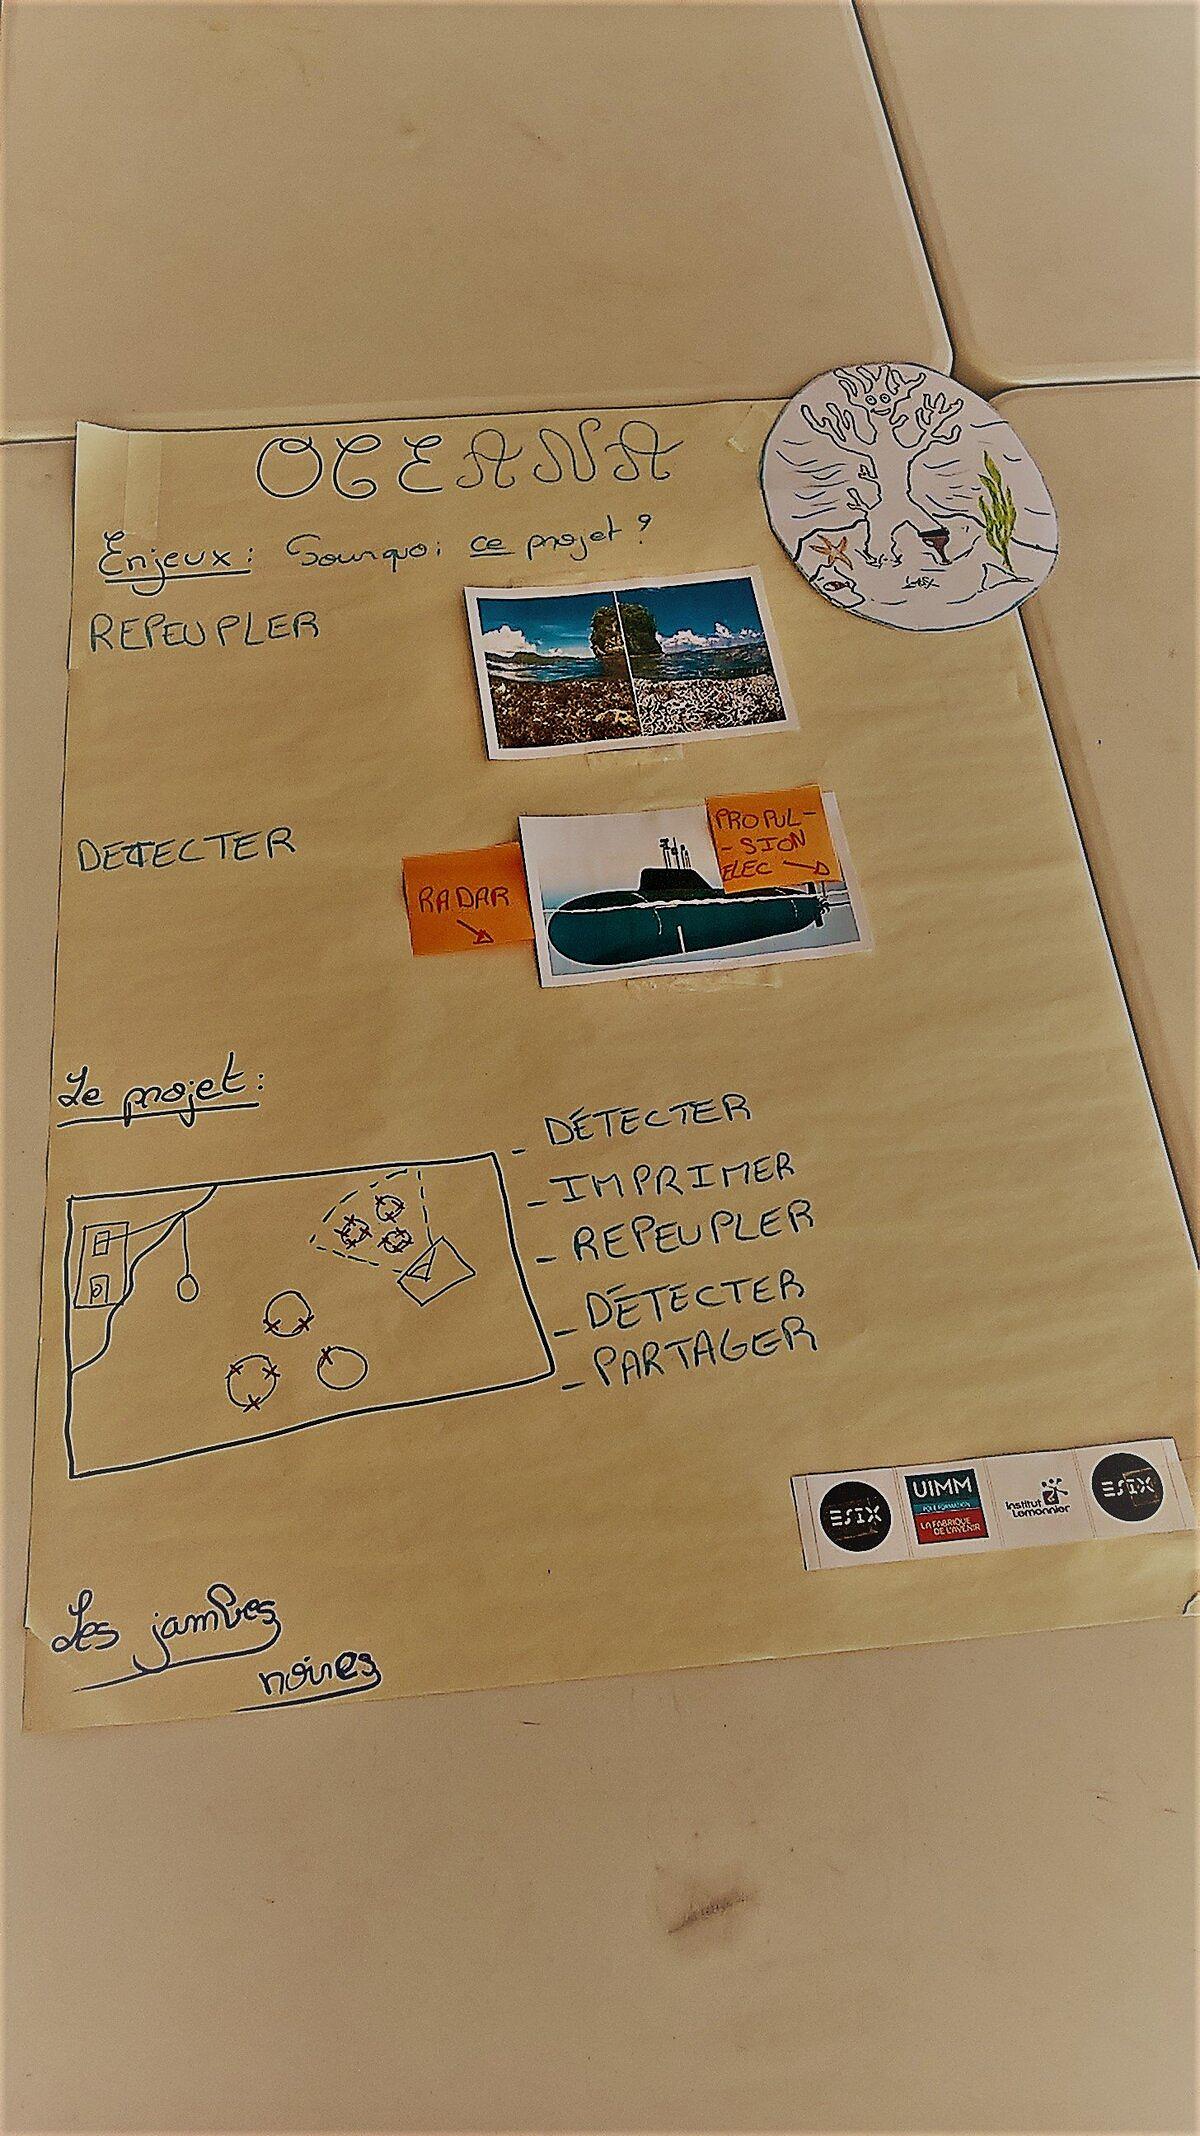 OCEANA
Enjeux: Pourquoi ce projet ?
REPEUPLER
DETECTER
RADAR
PROPUL-
-SION
ELEC
Le projet:
- DÉTECTER
- IMPRIMER
- REPEUPLER
- DÉTECTER
- PARTAGER
ESIX
UIMM
PÔLE FORMATION
LA FABRIQUE
DE L'AVENIR
Institut
Lemonnier
ESIX
Les jambes
noires